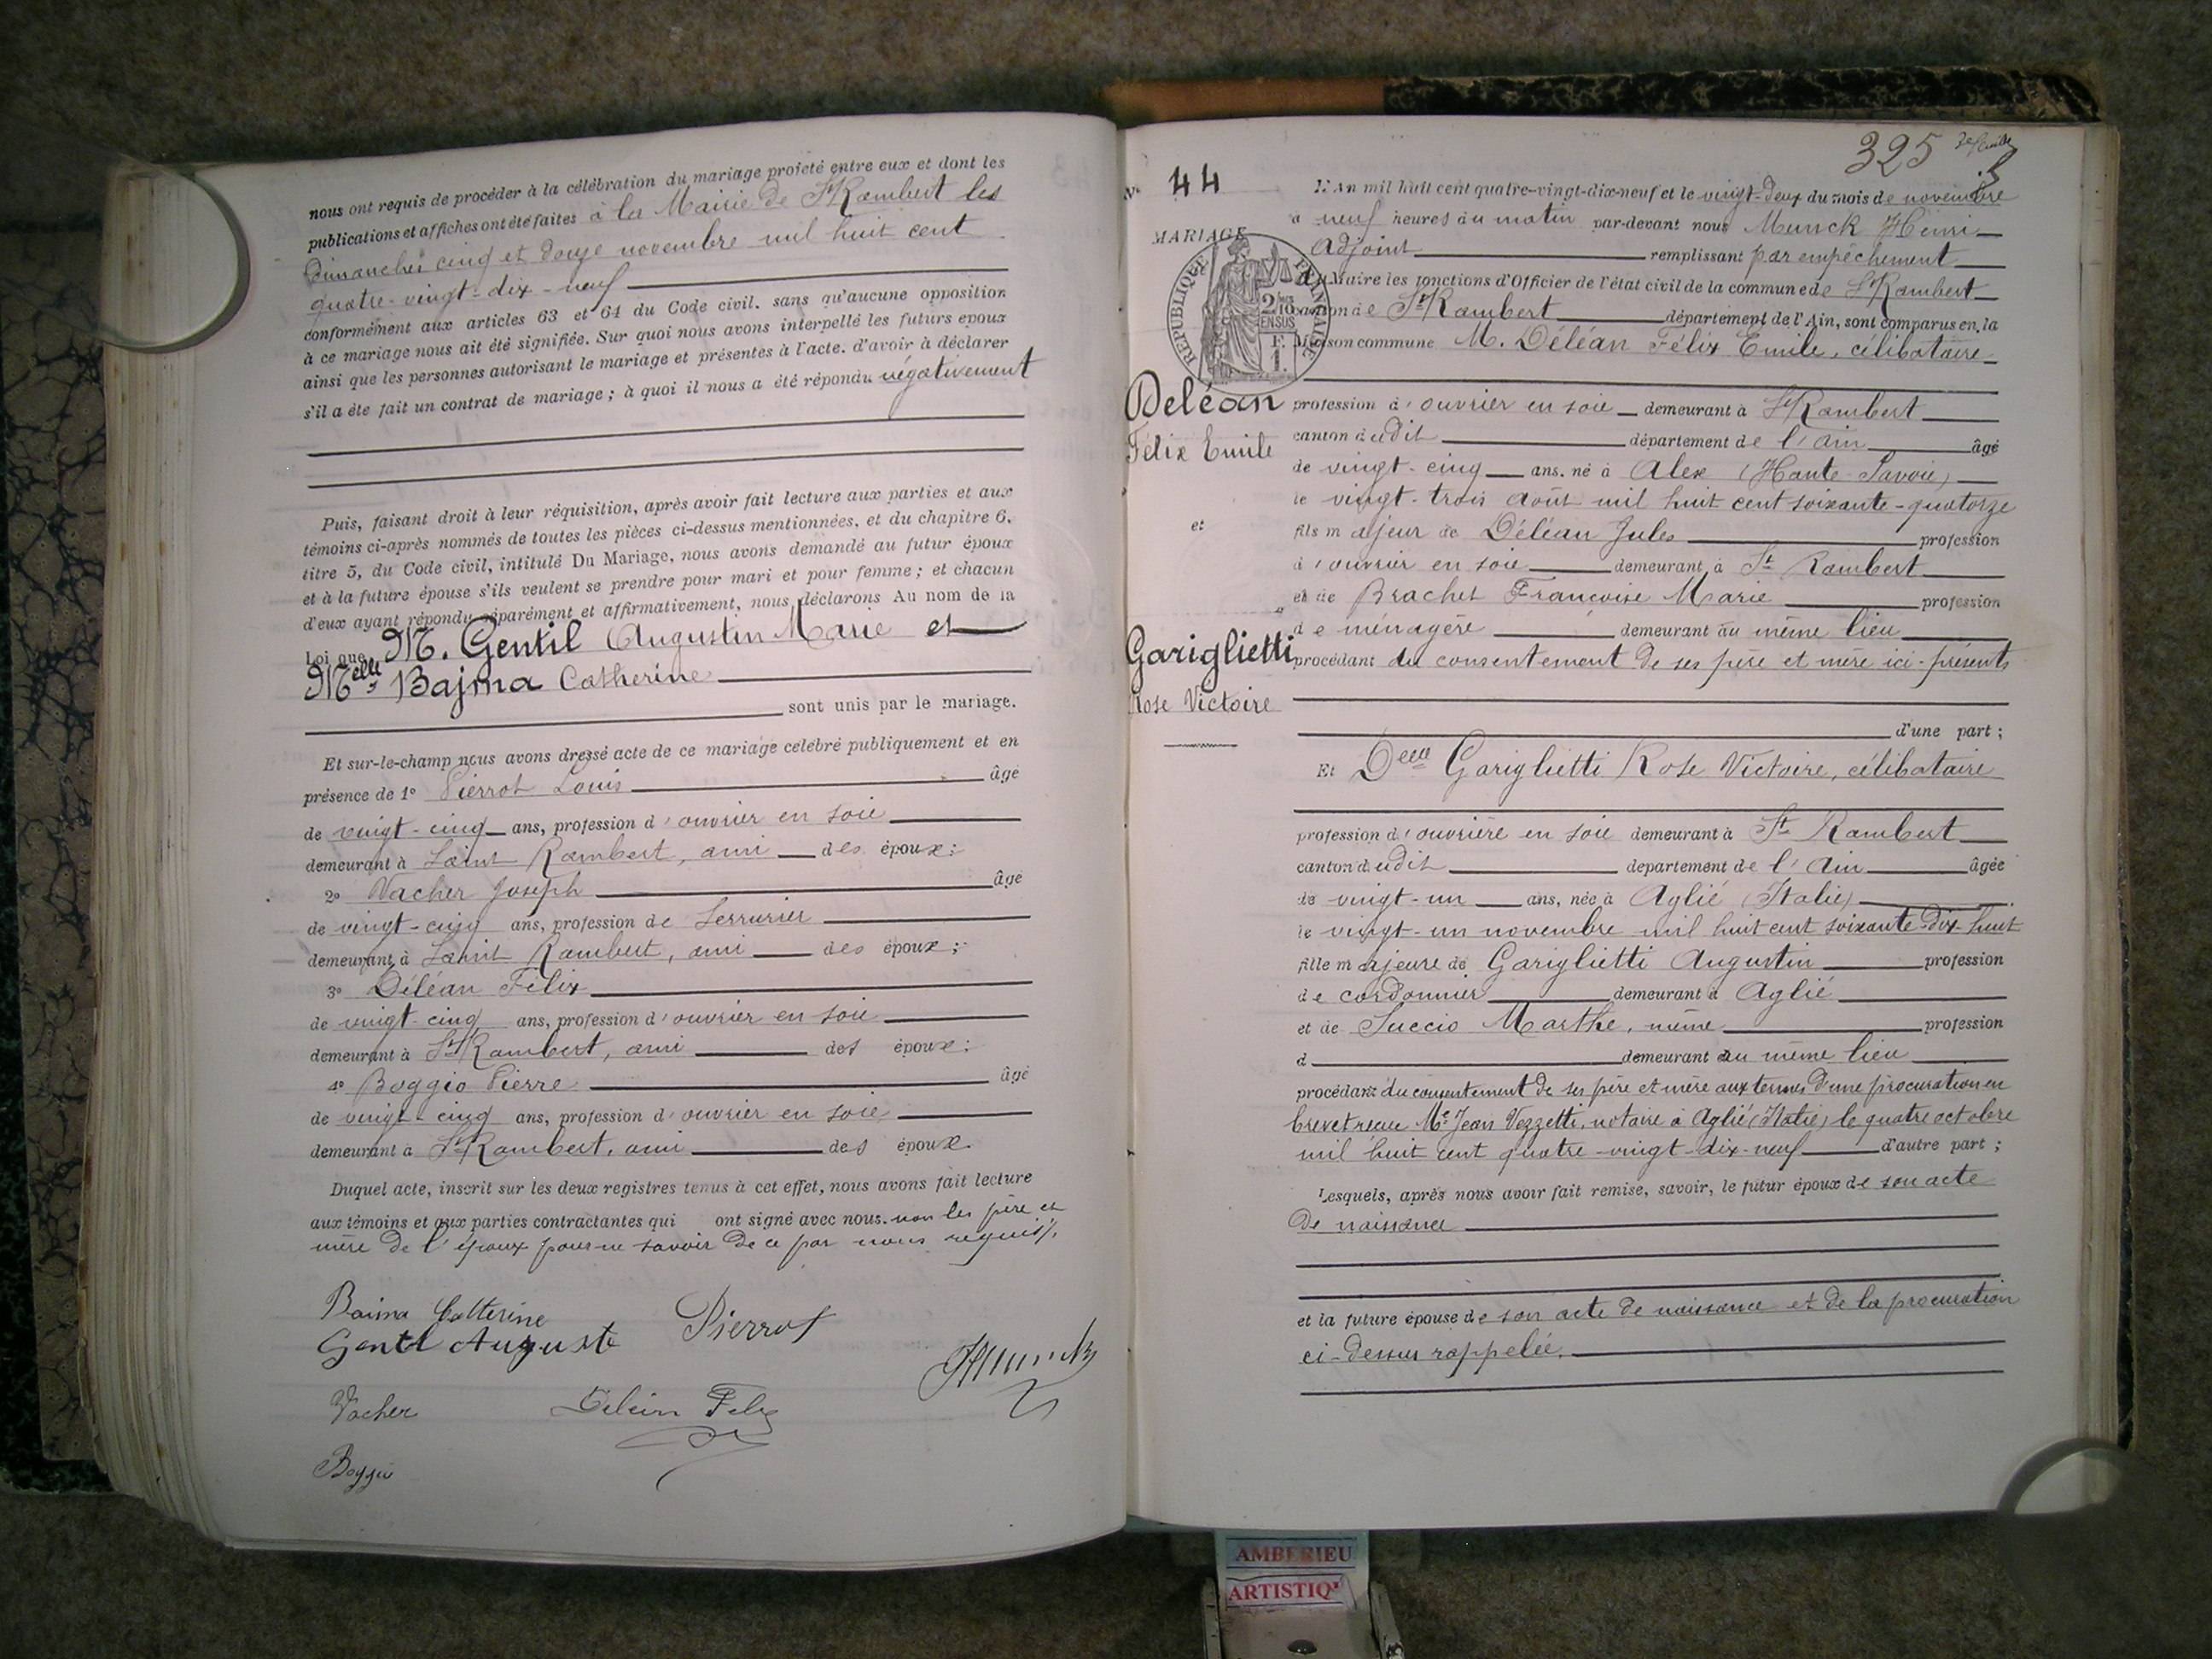 nous ont requis de procéder à la célébration du mariage projeté entre eux et dont les
publications et affiches ont été faites à la Mairie de St Rambert les
Dimanches cinq et douze novembre mil huit cent
quatre-vingt-dix-neuf
conformément aux articles 63 et 64 du Code civil. sans qu'aucune opposition
à ce mariage nous ait été signifiée. Sur quoi nous avons interpellé les futurs epoux
ainsi que les personnes autorisant le mariage et présentes à l'acte. d'avoir à déclarer
s'il a éte fait un contrat de mariage ; à quoi il nous a été répondu négativement
Puis, faisant droit à leur réquisition, après avoir fait lecture aux parties et aux
témoins ci-après nommés de toutes les pièces ci-dessus mentionnées, et du chapitre 6,
titre 5, du Code civil, intitulé Du Mariage, nous avons demandé au futur époux
et à la future épouse s'ils veulent se prendre pour mari et pour femme ; et chacun
d'eux ayant répondu séparément et affirmativement, nous déclarons Au nom de la
Loi que M. Gentil Augustin Marie et
Melle Bajma Catherine
sont unis par le mariage.
Et sur-le-champ nous avons dressé acte de ce mariage célébré publiquement et en
présence de 1º Pierrot Louis âgé
de vingt-cinq ans, profession d'ouvrier en soie
demeurant à Saint Rambert, ami des époux ;
2º Vacher Joseph âgé
de vingt-cinq ans, profession de serrurier
demeurant à Saint Rambert, ami des époux ;
3º Déléan Félix
de vingt-cinq ans, profession d'ouvrier en soie
demeurant à St Rambert, ami des époux :
4º Boggio Pierre âgé
de vingt-cinq ans, profession d'ouvrier en soie
demeurant à St Rambert, ami des époux.
Duquel acte, inscrit sur les deux registres tenus à cet effet, nous avons fait lecture
aux témoins et aux parties contractantes qui ont signé avec nous. non les père et
mère de l'époux pour ne savoir de ce par nous requis.
Baima Catterine
Gentil Auguste Pierrot
HMunck
Vacher Déléan Felix
Boggio
325 3e feuille
Nº 44
MARIAGE
REPUBLIQUE FRANÇAISE
2/10mes
EN SUS
1 F.
L'An mil huit cent quatre-vingt-dix-neuf et le vingt-deux du mois de novembre
à neuf heures du matin par-devant nous Munck Henri
Adjoint remplissant par empêchement
du Maire les fonctions d'Officier de l'état civil de la commune de St Rambert
canton de St Rambert département de l'Ain, sont comparus en la
Maison commune M. Déléan Félix Emile, célibataire
Deléan
Félix Emile
et
Gariglietti
Rose Victoire
profession d'ouvrier en soie demeurant à St Rambert
canton dudit département de l'Ain âgé
de vingt-cinq ans. né à Alex (Haute-Savoie)
le vingt-trois août mil huit cent soixante-quatorze
fils majeur de Déléan Jules profession
d'ouvrier en soie demeurant à St Rambert
et de Brachet Françoise Marie profession
de ménagère demeurant au même lieu
procédant du consentement de ses père et mère ici-présents
d'une part ;
Et Delle Gariglietti Rose Victoire, célibataire
profession d'ouvrière en soie demeurant à St Rambert
canton dudit departement de l'Ain âgée
de vingt-un ans, née à Aglié (Italie)
le vingt-un novembre mil huit cent soixante-dix-huit
fille majeure de Gariglietti Augustin profession
de cordonnier demeurant à Aglié
et de Succio Marthe, même profession
d demeurant au même lieu
procédant du consentement de ses père et mère aux termes d'une procuration en
brevet reçue Me Jean Vezzetti, notaire à Aglié (Italie) le quatre octobre
mil huit cent quatre-vingt-dix-neuf d'autre part ;
Lesquels, après nous avoir fait remise, savoir, le futur époux de son acte
de naissance
et la future épouse de son acte de naissance et de la procuration
ci-dessus rappelée.
AMBERIEU
ARTISTIQ